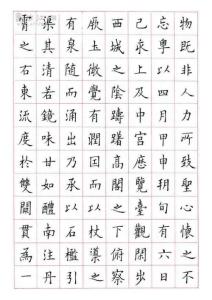 物既非人力所致聖心懷之不
忘粵以四月甲申朔旬有六日
己亥上及中宮歷覽臺觀閑步
西城之陰躊躇高閣之下俯察
厥土微覺有潤因而以杖導之
有泉隨而涌出乃承以石檻引
渠其清若鏡味甘如醴南注丹
霄之右東流度於雙闕貫為一